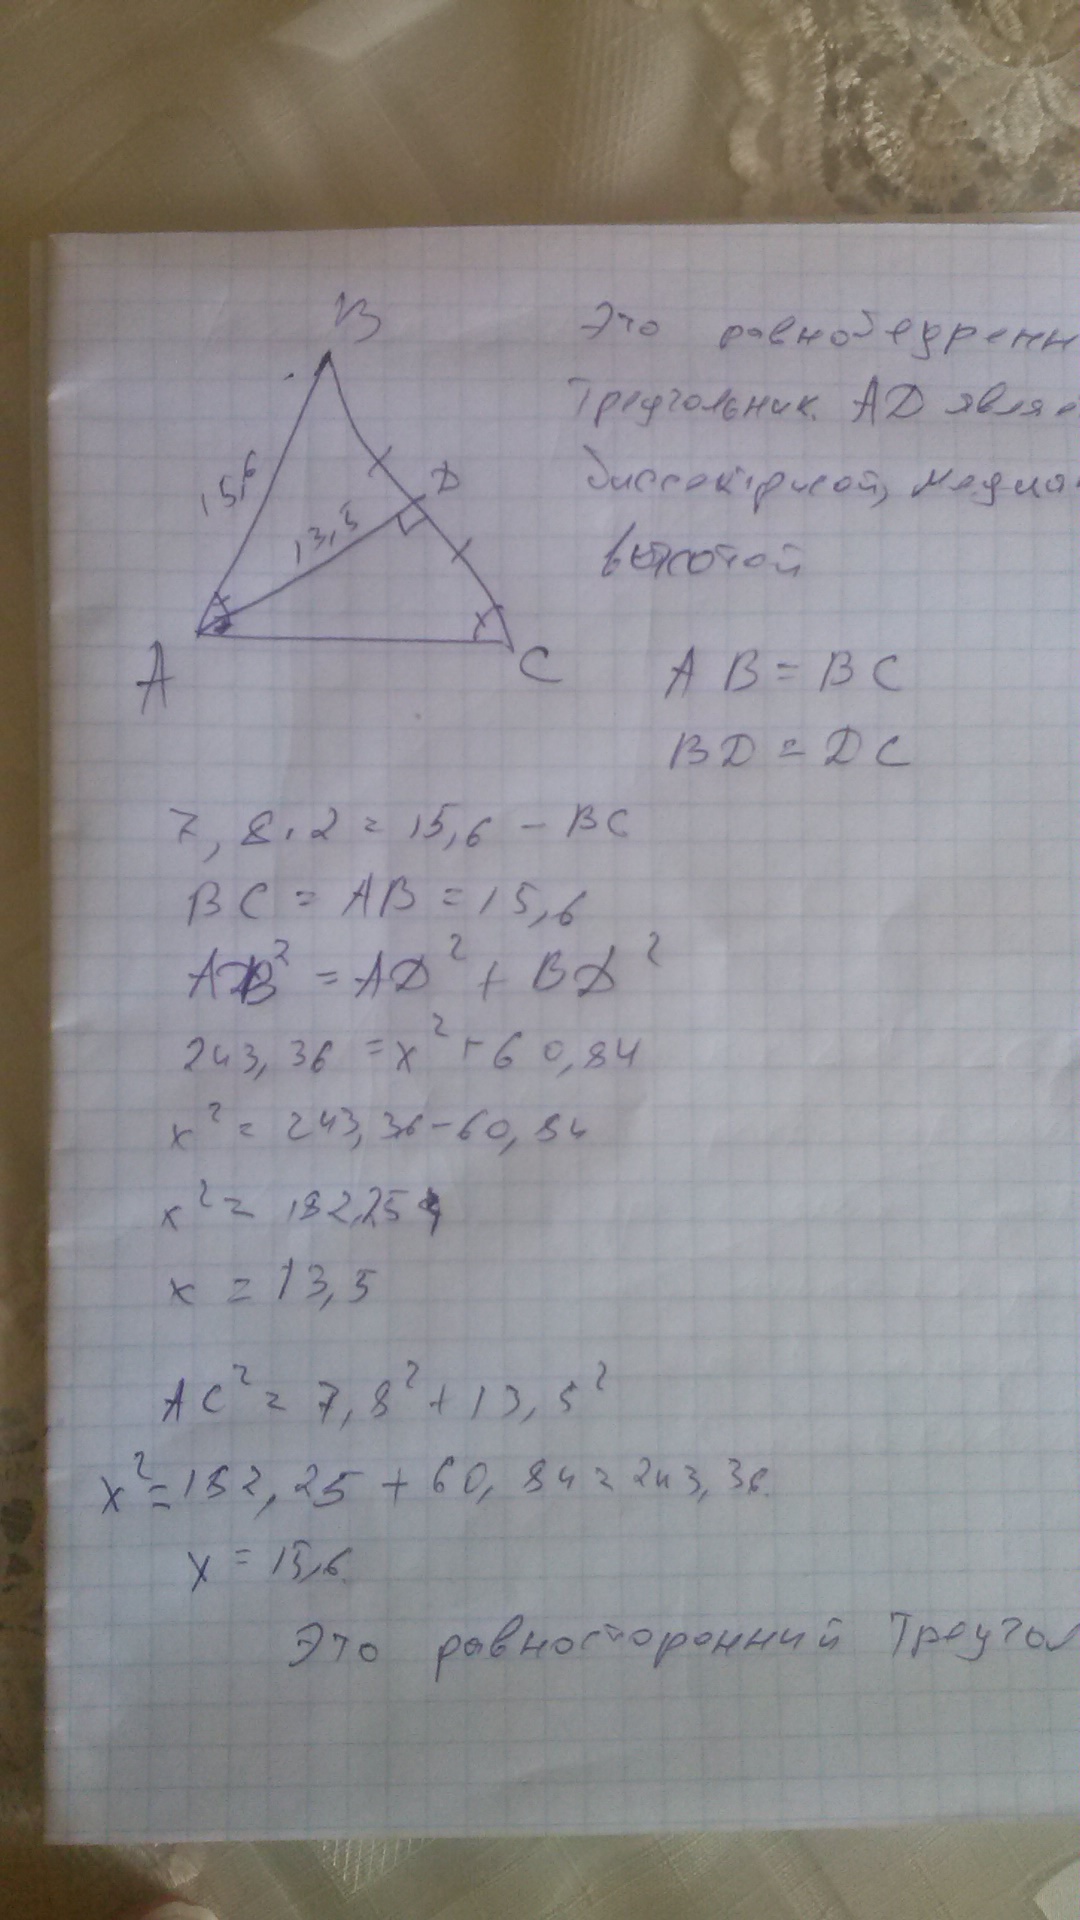 B
Это равнобедренн
треугольник. AD являе
биссектрисой, медиа
высотой
15,6
D
13,5
A
C
AB = BC
BD = DC
7,8 · 2 = 15,6 - BC
BC = AB = 15,6
AB² = AD² + BD²
243,36 = x² + 60,84
x² = 243,36 - 60,84
x² = 182,25
x = 13,5
AC² = 7,8² + 13,5²
x² = 182,25 + 60,84 = 243,36.
x = 15,6.
Это равносторонний треугол